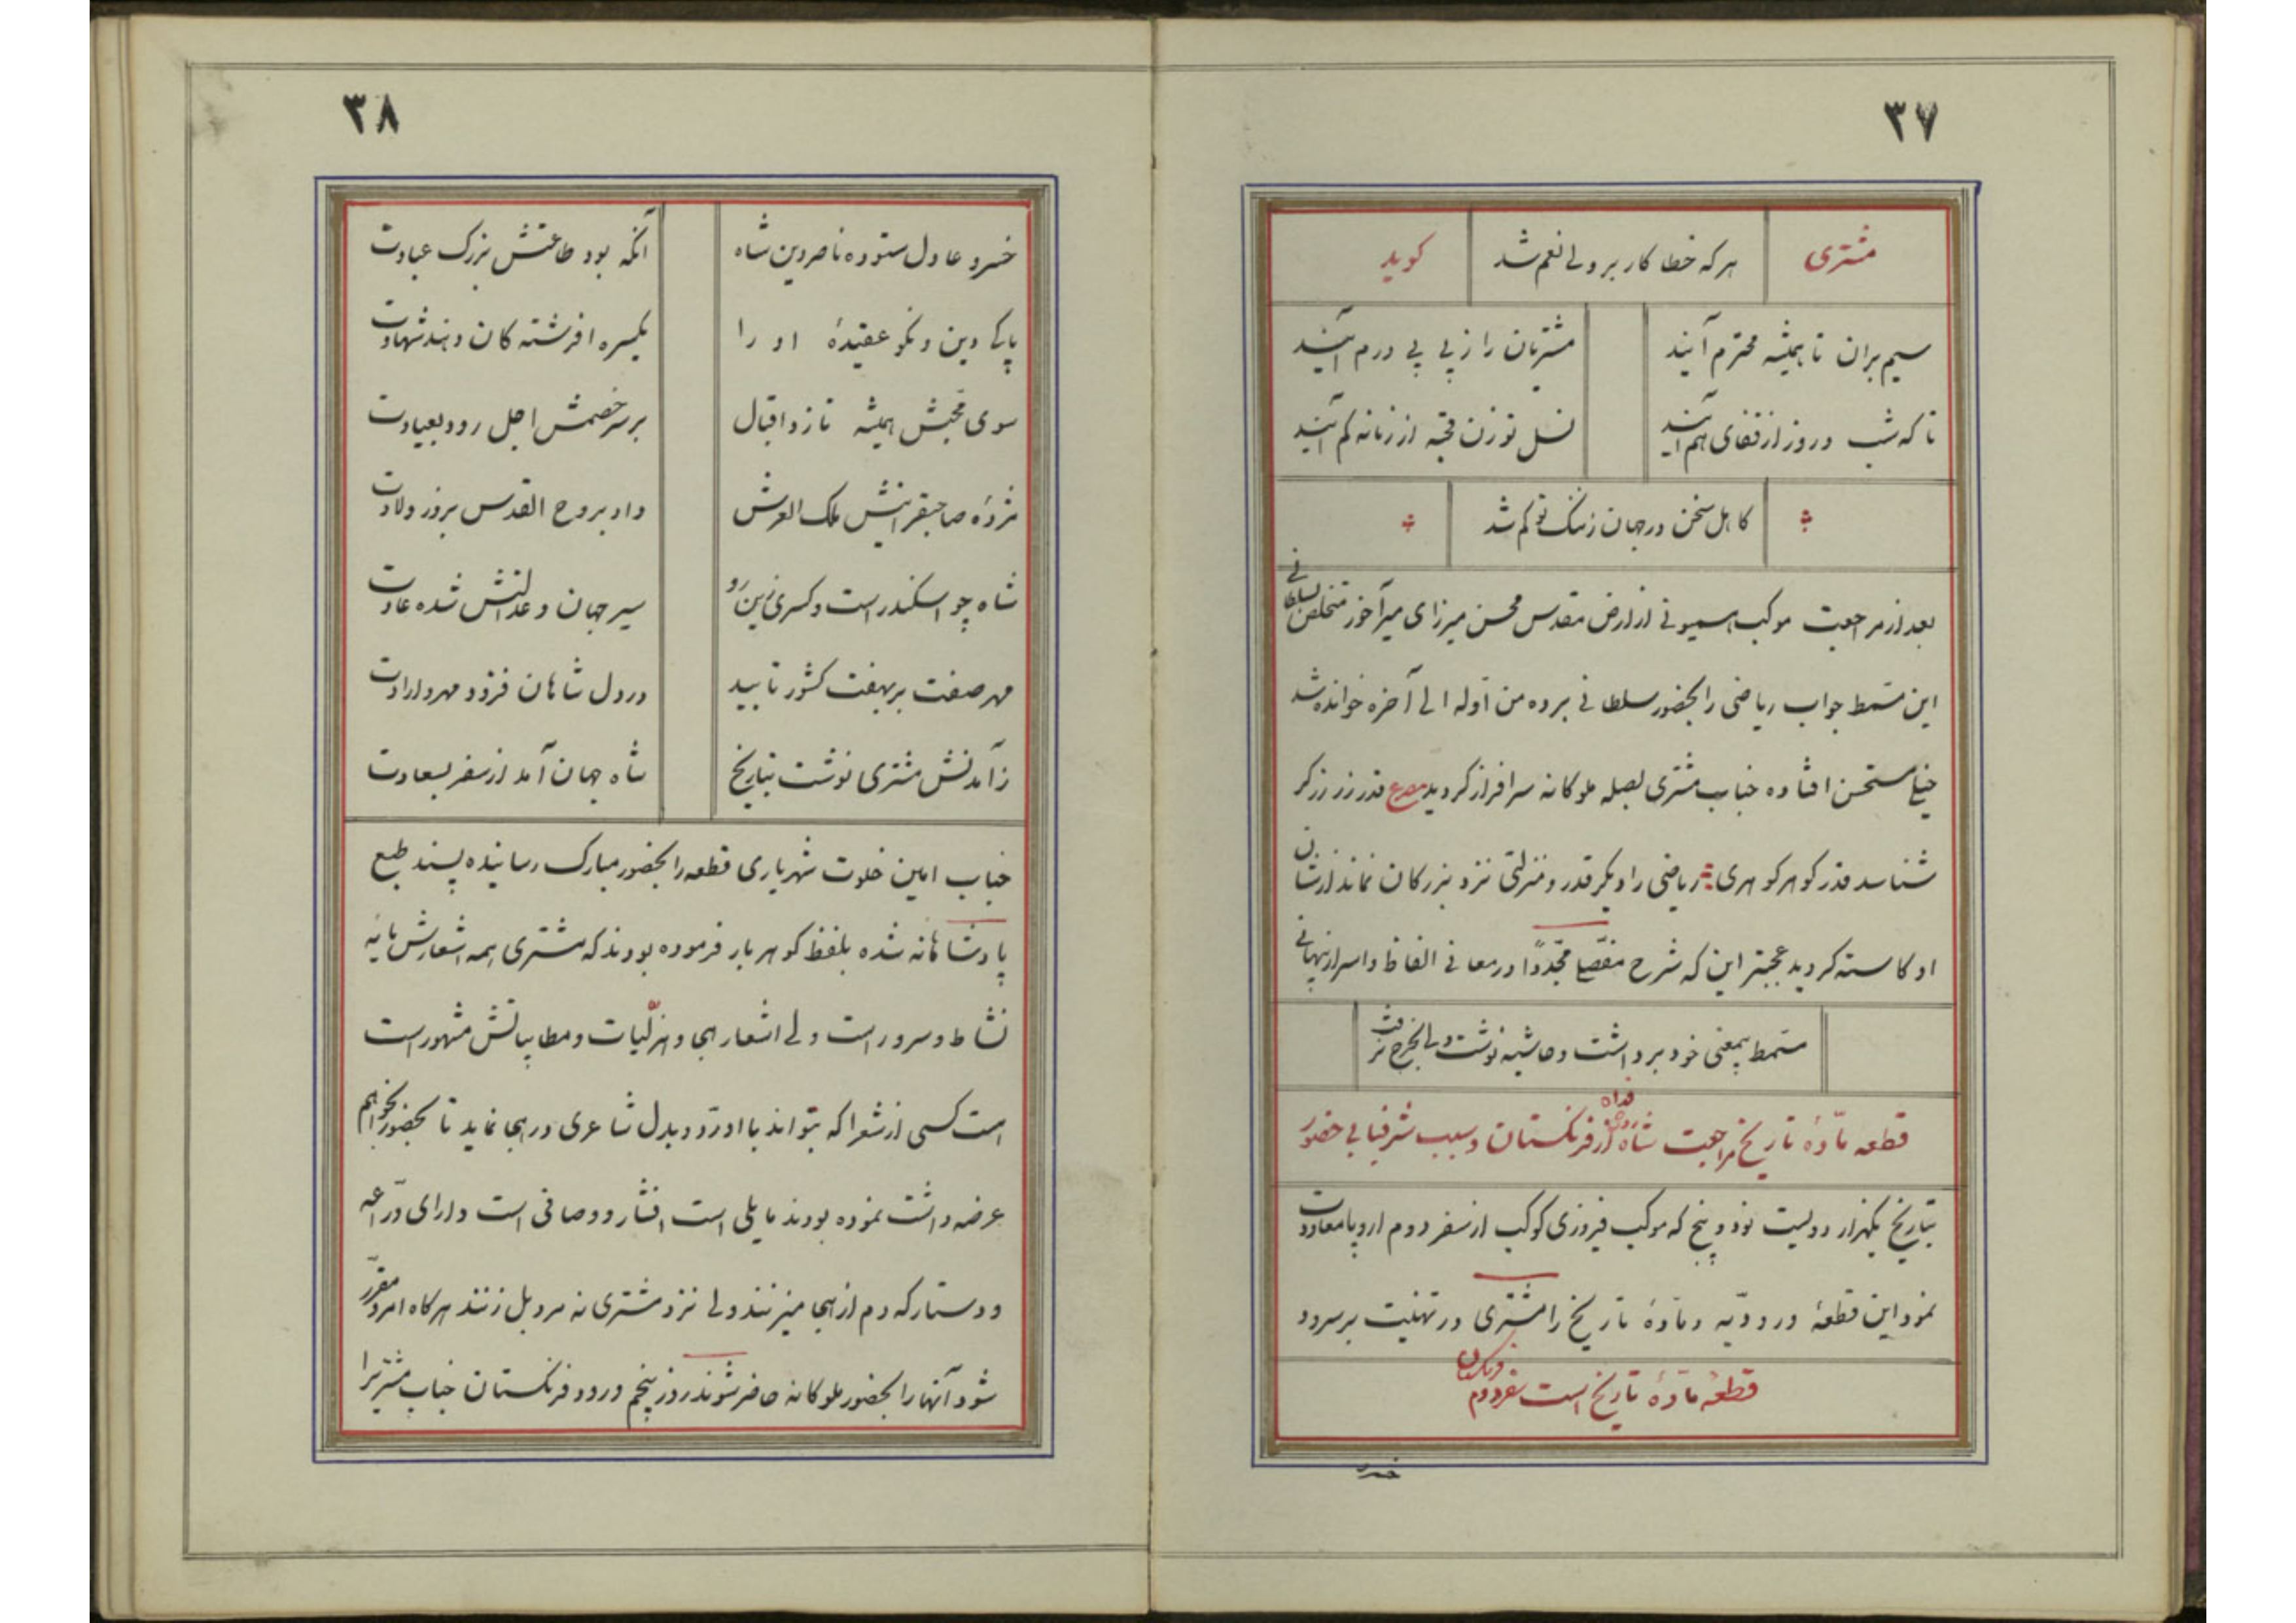 ۳۷
مشتری هر که خطا کار بر ولی نعم شد کوید
سیم بران تا همیشه محترم آیند مشتریان را ز پی پی درم آیند
تا که شب و روز از قفای هم آیند نسل تو زن قحبه از زمانه کم آیند
کاهل سخن در جهان ز ننک تو کم شد
بعد از مراجعت موکب همیونی از ارض مقدس محسن میرزای میرآخور متخلص بسلطانی
این مسمط جواب ریاضی را بحضور سلطانی برده من اوله الی آخره خوانده شد
خیلی مستحسن افتاده جناب مشتری بصله ملوکانه سرافراز کردید مصرع قدر زر زرکر
شناسد قدر کوهر کوهری ریاضی را دیکر قدر و منزلتی نزد بزرکان نماند از شان
او کاسته کردید عجبتر این که شرح مفصلی مجددا در معانی الفاظ و اسرار نهانی
مسمط بیمعنی خود برداشت و حاشیه نوشت ولی بخرج نرفت
قطعه مادهٔ تاریخ مراجعت شاه روحی فداه از فرنکستان و سبب شرفیابی حضور
بتاریخ یکهزار دولیت نود و پنج که موکب فیروزی کوکب از سفر دوم اروپا معاودت
نمود این قطعهٔ ورودیه و مادهٔ تاریخ را مشتری در تهنیت بر سرود
قطعهٔ مادهٔ تاریخ است سفر دوم فرنکستان
خسرو
۳۸
خسرو عادل ستوده ناصردین شاه آنکه بود طاعتش بزرک عبادت
پاکی دین و نکو عقیدهٔ او را یکسره افرشته کان دهند شهادت
سوی محبش همیشه تازد اقبال بر سر خصمش اجل رود بعیادت
مژدهٔ صاحبقرانیش ملک العرش داد بروح القدس بروز ولادت
شاه چو اسکندر است و کسری زین رو سیر جهان و عدالتش شده عادت
مهر صفت بر بهفت کشور تابید در دل شاهان فزود مهر و ارادت
ز آمدنش مشتری نوشت بتاریخ شاه جهان آمد از سفر بسعادت
جناب امین خلوت شهریاری قطعه را بحضور مبارک رسانیده پسند طبع
پادشاهانه شده بلفظ کوهر بار فرموده بودند که مشتری همه اشعارش مایه
نشاط و سرور است ولی اشعار هجا و هزلیات و مطایباتش مشهور است
است کسی از شعرا که بتواند با او رد و بدل شاعری در هجا نماید تا بحضور بخواهم
عرضه داشت نموده بودند مایلی است افشار و وصافی است دارای دراعه
و دستار که دم از هجا میزنند ولی نزد مشتری نه مرد بل زنند هر کاه امر و مقرر
شود آنها را بحضور ملوکانه حاضر شوند روز پنجم ورود فرنکستان جناب مشتریرا